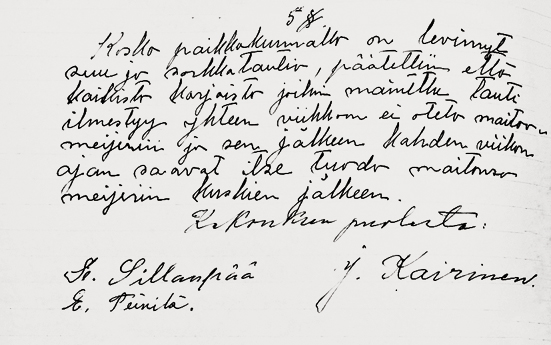 5 §
Koska paikkakunnalla on levinnyt
suu ja sorkkatautia, päätettiin että
kaikista karjoista joihin mainittu tauti
ilmestyy yhteen viikkoon ei oteta maitoa
meijeriin ja sen jälkeen kahden viikon
ajan saavat itse tuoda maitonsa
meijeriin kuskien jälkeen.
Kokouksen puolesta:
J. Kairinen.
F. Sillanpää
E. Peinilä.